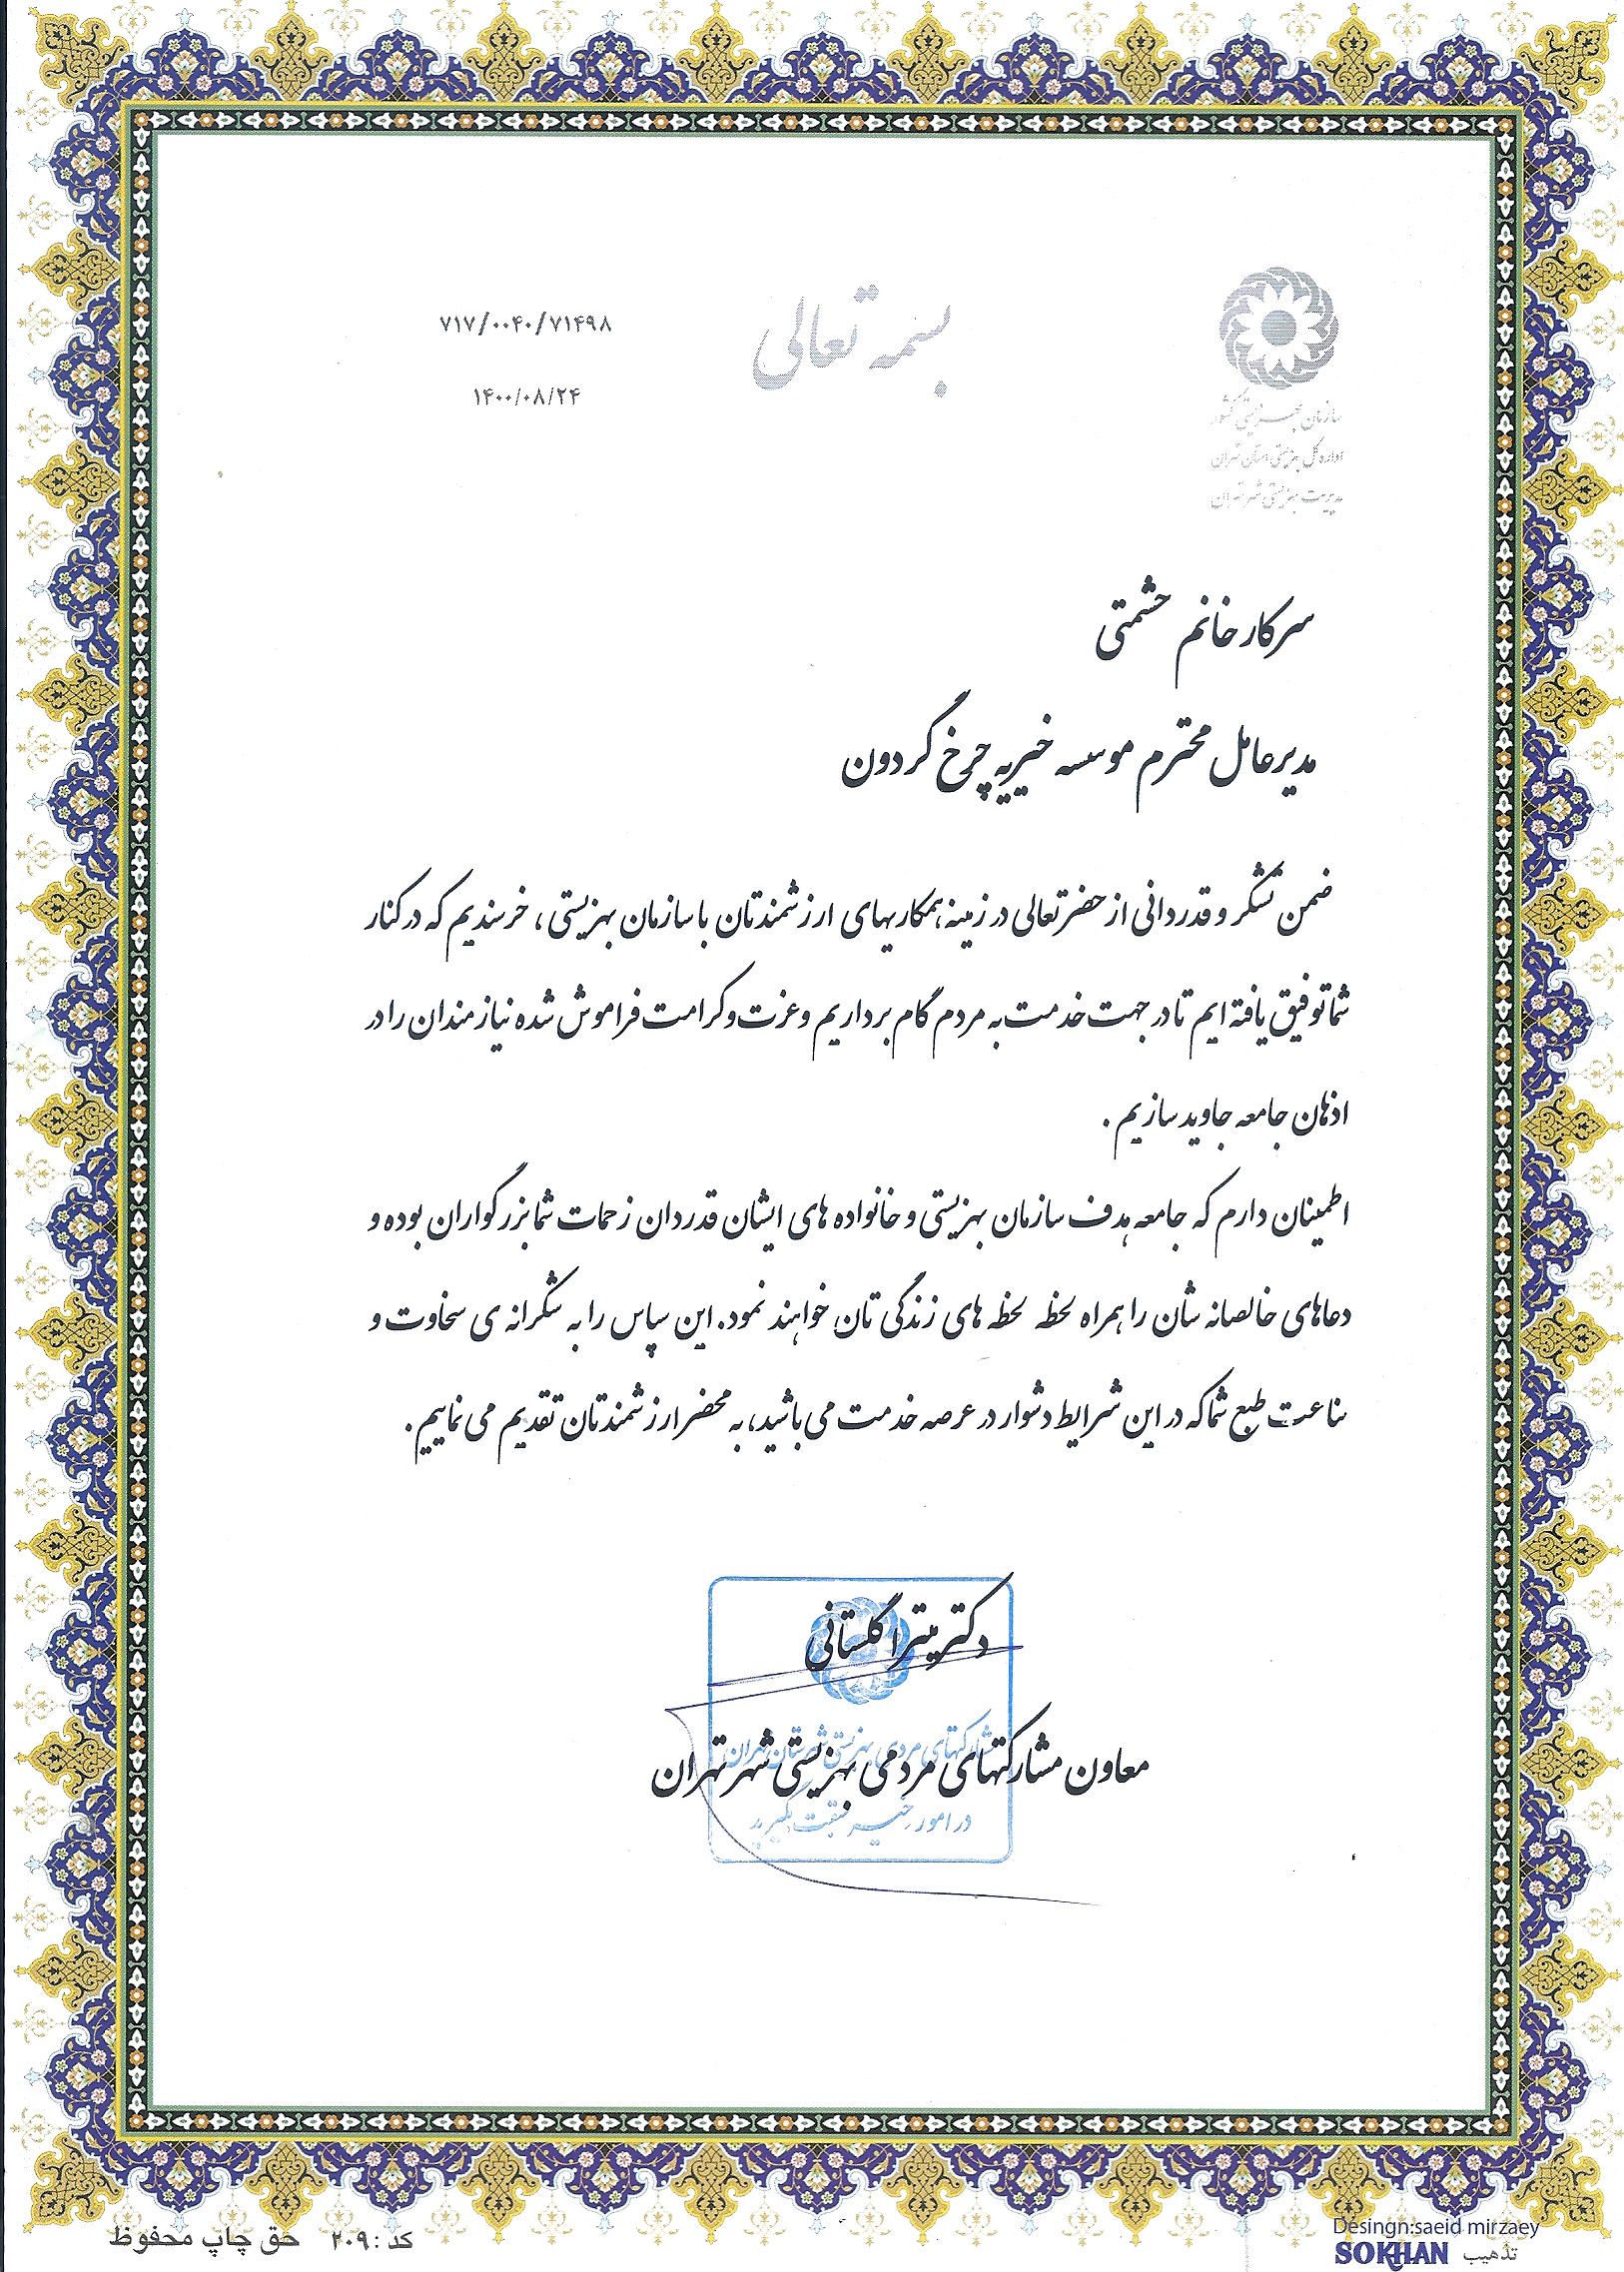 بسمه تعالی
۷۱۷/۰۰۴۰/۷۱۴۹۸
۱۴۰۰/۰۸/۲۴
سازمان بهزیستی کشور
اداره کل بهزیستی استان تهران
مدیریت بهزیستی شهر تهران
سرکار خانم حشمتی
مدیرعامل محترم موسسه خیریه چرخ گردون
ضمن تشکر و قدردانی از حضرتعالی در زمینه همکاریهای ارزشمندتان با سازمان بهزیستی، خرسندیم که در کنار
شما توفیق یافته ایم تا در جهت خدمت به مردم گام برداریم و عزت و کرامت فراموش شده نیازمندان را در
اذهان جامعه جاوید سازیم.
اطمینان دارم که جامعه هدف سازمان بهزیستی و خانواده های ایشان قدردان زحمات شما بزرگواران بوده و
دعاهای خالصانه شان را همراه لحظه لحظه های زندگی تان خواهند نمود. این سپاس را به شکرانه ی سخاوت و
مناعت طبع شما که در این شرایط دشوار در عرصه خدمت می باشید، به محضر ارزشمندتان تقدیم می نماییم.
دکتر میترا گلستانی
مشارکتهای مردمی بهزیستی شهرستان تهران
معاون مشارکتهای مردمی بهزیستی شهر تهران
در امور خیر سبقت بگیرید
کد: ۲۰۹ حق چاپ محفوظ
Desingn:saeid mirzaey
SOKHAN تذهیب